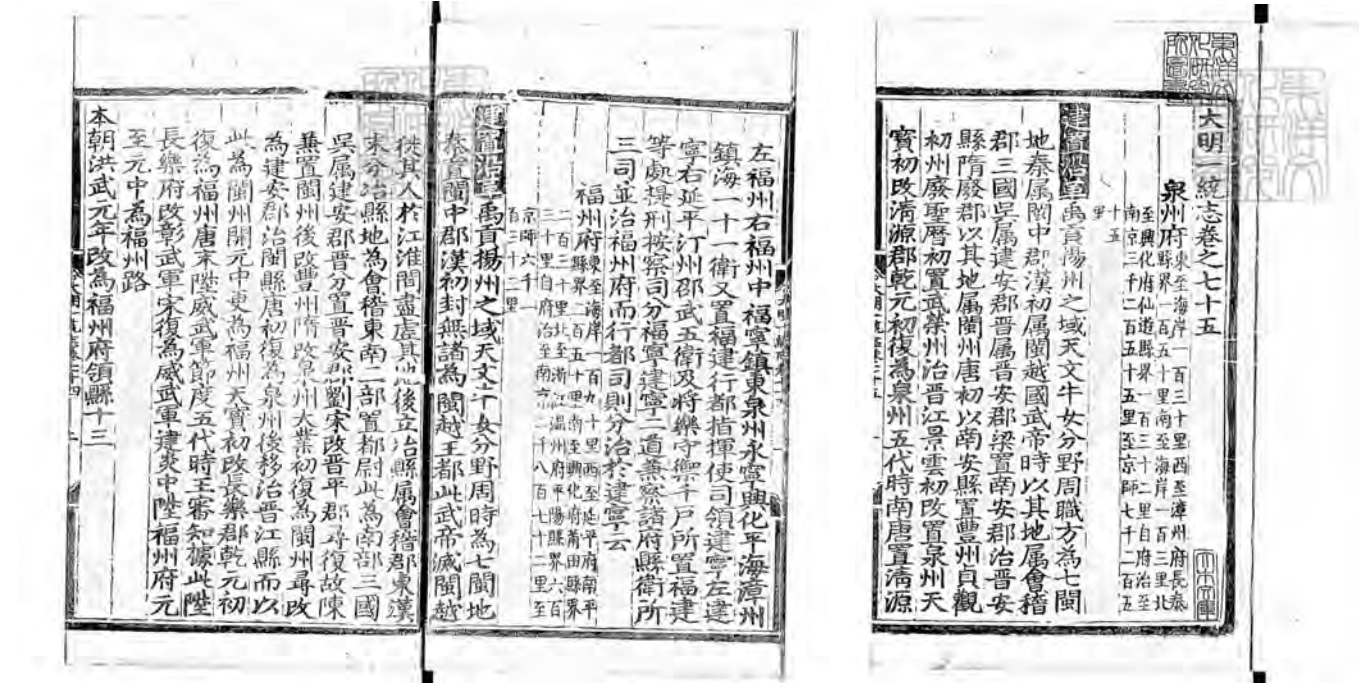 大明一統志卷之七十五
泉州府
東至海岸一百三十里西至漳州府長泰
縣界一百五十里南至海岸一百三里北
至興化府仙遊縣界一百三十二里自府治至
南京三千二百五十五里至京師七千二百五
十五里
建置沿革禹貢揚州之域天文牛女分野周職方為七閩
地秦属閩中郡漢初属閩越國武帝時以其地属會稽
郡三國吳属建安郡晋属晋安郡梁置南安郡治晋安
縣隋廢郡以其地属閩州唐初以南安縣置豐州貞觀
初州廢聖曆初置武榮州治晋江景雲初改置泉州天
寶初改清源郡乾元初復為泉州五代時南唐置清源
左福州右福州中福寧鎮東泉州永寧興化平海漳州
鎮海一十一衛又置福建行都指揮使司領建寧左建
寧右延平汀州邵武五衛及將樂守禦千戶所置福建
等處提刑按察司分福寧建寧二道兼察諸府縣衛所
三司並治福州府而行都司則分治於建寧云
福州府
東至海岸一百九十里西至延平府南平
縣界二百五十里南至興化府莆田縣界
二百三十里北至浙江温州府平陽縣界六百
三十里自府治至南京二千八百七十二里至
京師六千一
百三十二里
建置沿革禹貢揚州之域天文牛女分野周時為七閩地
秦置閩中郡漢初封無諸為閩越王都此武帝滅閩越
徙其人於江淮間盡虚其地後立冶縣属會稽郡東漢
末分冶縣地為會稽東南二部置都尉此為南部三國
吳属建安郡晋分置晋安郡劉宋改晋平郡尋復故陳
兼置閩州後改豐州隋改泉州大業初復為閩州尋改
為建安郡治閩縣唐初復為泉州後移治晋江縣而以
此為閩州開元中更為福州天寶初改長樂郡乾元初
復為福州唐末陞威武軍節度五代時王審知據此陞
長樂府改彰武軍宋復為威武軍建炎中陞福州府元
至元中為福州路
本朝洪武元年改為福州府領縣十三